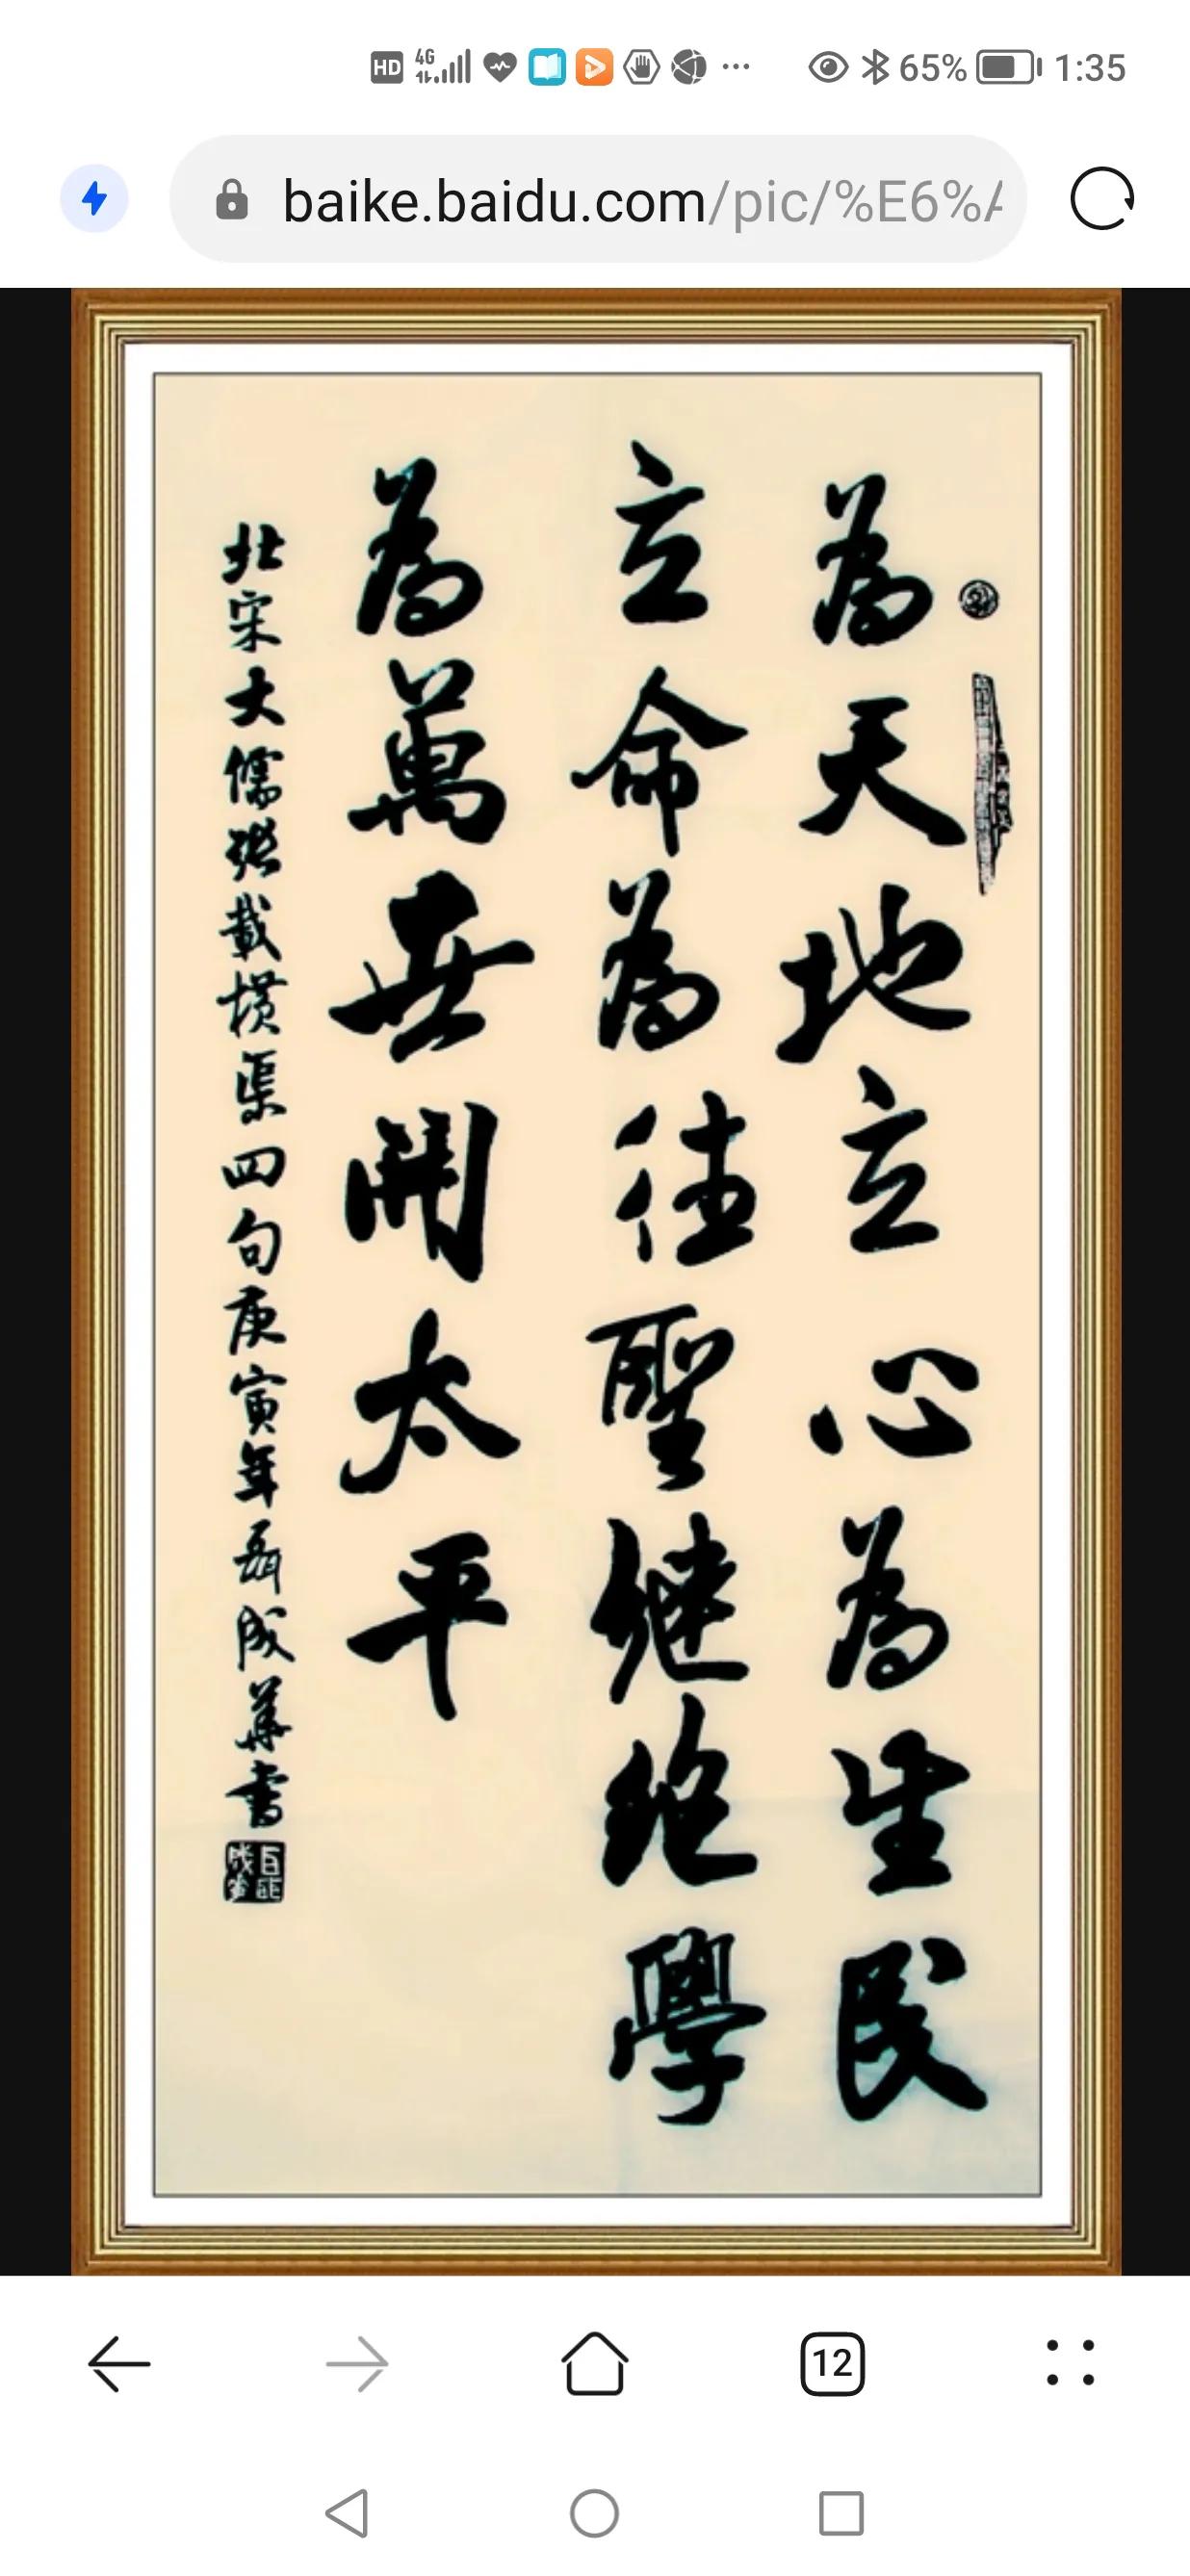 HD 4G 65% 1:35
baike.baidu.com/pic/%E6%A
為天地立心為生民
立命為往聖継絶學
為萬世開太平
北宋大儒張載横渠四句庚寅年聶成華書
12